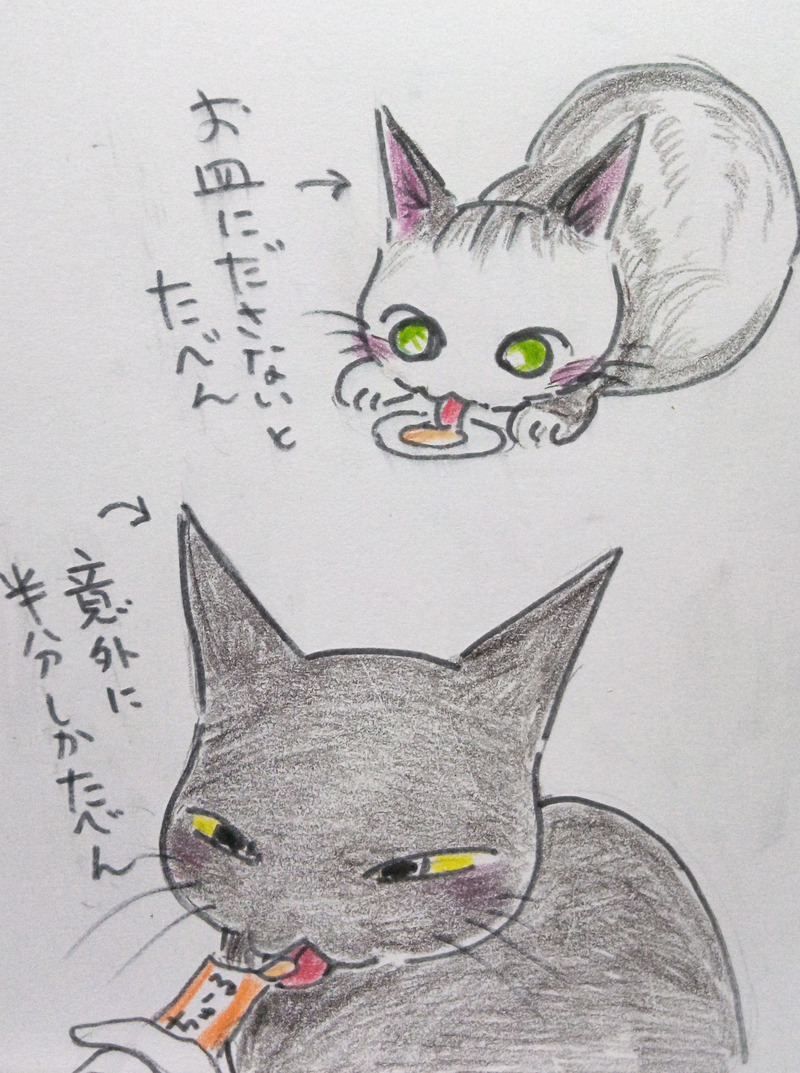 お皿にださないと
たべん
意外に
半分しかたべん
ちゅ〜る